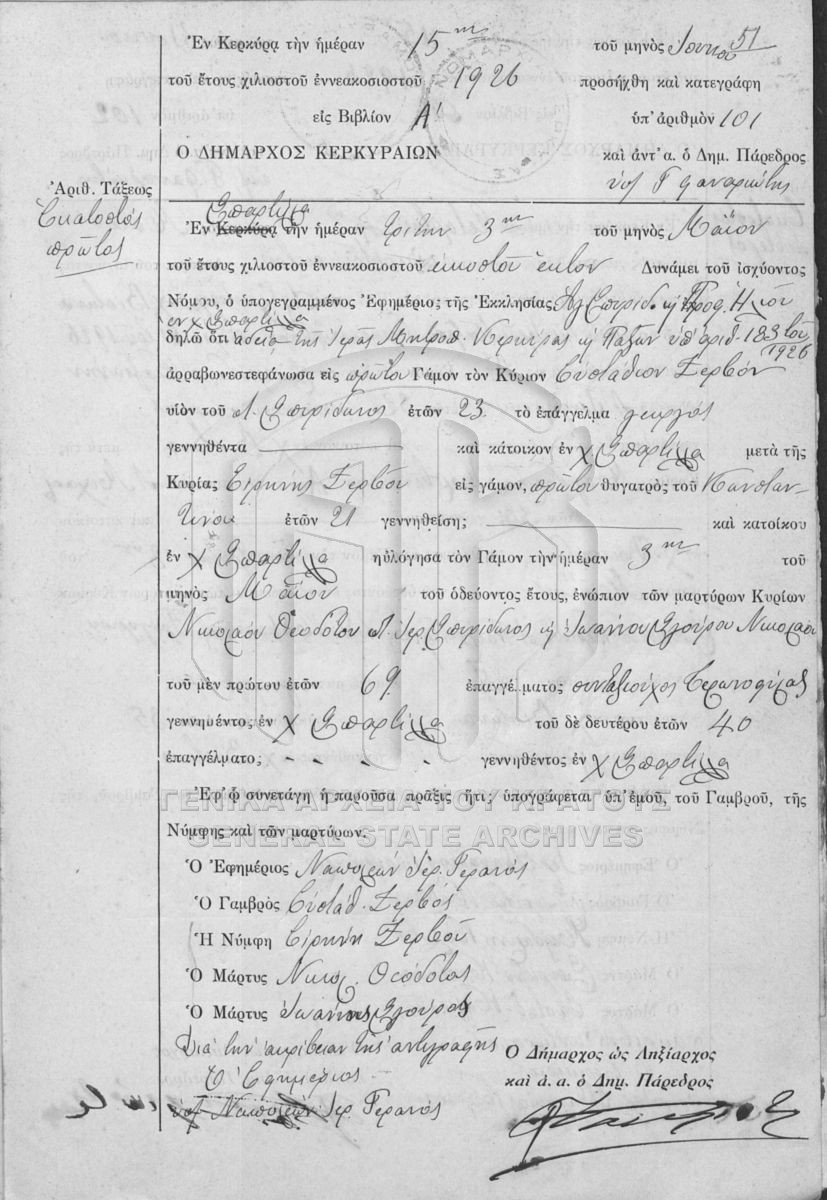 51
Ἐν Κερκύρᾳ τὴν ἡμέραν 15ην τοῦ μηνὸς Ἰουνίου
τοῦ ἔτους χιλιοστοῦ ἐννεακοσιοστοῦ 1926 προσήχθη καὶ κατεγράφη
εἰς Βιβλίον Α΄ ὑπ' ἀριθμὸν 101
Ο ΔΗΜΑΡΧΟΣ ΚΕΡΚΥΡΑΙΩΝ καὶ ἀντ' α. ὁ Δημ. Πάρεδρος
Ἀριθ. Τάξεως
Ἑκατοστὸς
πρῶτος
Σπαρτύλλᾳ
Ἐν Κερκύρᾳ τὴν ἡμέραν τρίτην 3ην τοῦ μηνὸς Μαΐου
τοῦ ἔτους χιλιοστοῦ ἐννεακοσιοστοῦ εἰκοστοῦ ἕκτου Δυνάμει τοῦ ἰσχύοντος
Νόμου, ὁ ὑπογεγραμμένος Ἐφημέριος τῆς Ἐκκλησίας Ἁγ Σπυρίδ. κ Προφ. Ἠλιοῦ
ἐν χ Σπαρτύλλᾳ
δηλῶ ὅτι ἀδείᾳ τῆς Ἱερᾶς Μητροπ. Κερκύρας κ Παξῶν ὑπ' ἀριθ. 183 τοῦ
1926
ἀρραβωνεστεφάνωσα εἰς πρῶτον Γάμον τὸν Κύριον Εὐστάθιον Ζερβόν
υἱὸν τοῦ Σπυρίδωνος ἐτῶν 23 τὸ ἐπάγγελμα γεωργὸς
γεννηθέντα καὶ κάτοικον ἐν χ Σπαρτύλλᾳ μετὰ τῆς
Κυρίας Εἰρήνης Ζερβοῦ εἰς γάμον, πρῶτον θυγατρὸς τοῦ Κωνσταν-
τίνου ἐτῶν 21 γεννηθείσης καὶ κατοίκου
ἐν χ Σπαρτύλλᾳ ηὐλόγησα τὸν Γάμον τὴν ἡμέραν 3ην τοῦ
μηνὸς Μαΐου τοῦ ὁδεύοντος ἔτους, ἐνώπιον τῶν μαρτύρων Κυρίων
Νικολάου Θεοδότου Ἱερ. Σπυρίδωνος κ Ἰωάννου Σγούρου Νικολάου
τοῦ μὲν πρώτου ἐτῶν 69 ἐπαγγέλματος συνταξιοῦχος
γεννηθέντος ἐν χ Σπαρτύλλᾳ τοῦ δὲ δευτέρου ἐτῶν 40
ἐπαγγέλματος γεννηθέντος ἐν χ Σπαρτύλλᾳ
Ἐφ' ᾧ συνετάγη ἡ παροῦσα πρᾶξις ἥτις ὑπογράφεται ὑπ' ἐμοῦ, τοῦ Γαμβροῦ, τῆς
Νύμφης καὶ τῶν μαρτύρων.
ΓΕΝΙΚΑ ΑΡΧΕΙΑ ΤΟΥ ΚΡΑΤΟΥΣ
GENERAL STATE ARCHIVES
Ὁ Ἐφημέριος Ναπολέων Ἱερ. Γερανός
Ὁ Γαμβρὸς Εὐστάθ. Ζερβός
Ἡ Νύμφη Εἰρήνη Ζερβοῦ
Ὁ Μάρτυς Νικολ. Θεόδοτος
Ὁ Μάρτυς Ἰωάννης Σγοῦρος
Διὰ τὴν ἀκρίβειαν τῆς ἀντιγραφῆς
Ὁ Ἐφημέριος
Ναπολέων Ἱερ. Γερανός
Ο Δήμαρχος ὡς Ληξίαρχος
καὶ ἀ. α. ὁ Δημ. Πάρεδρος